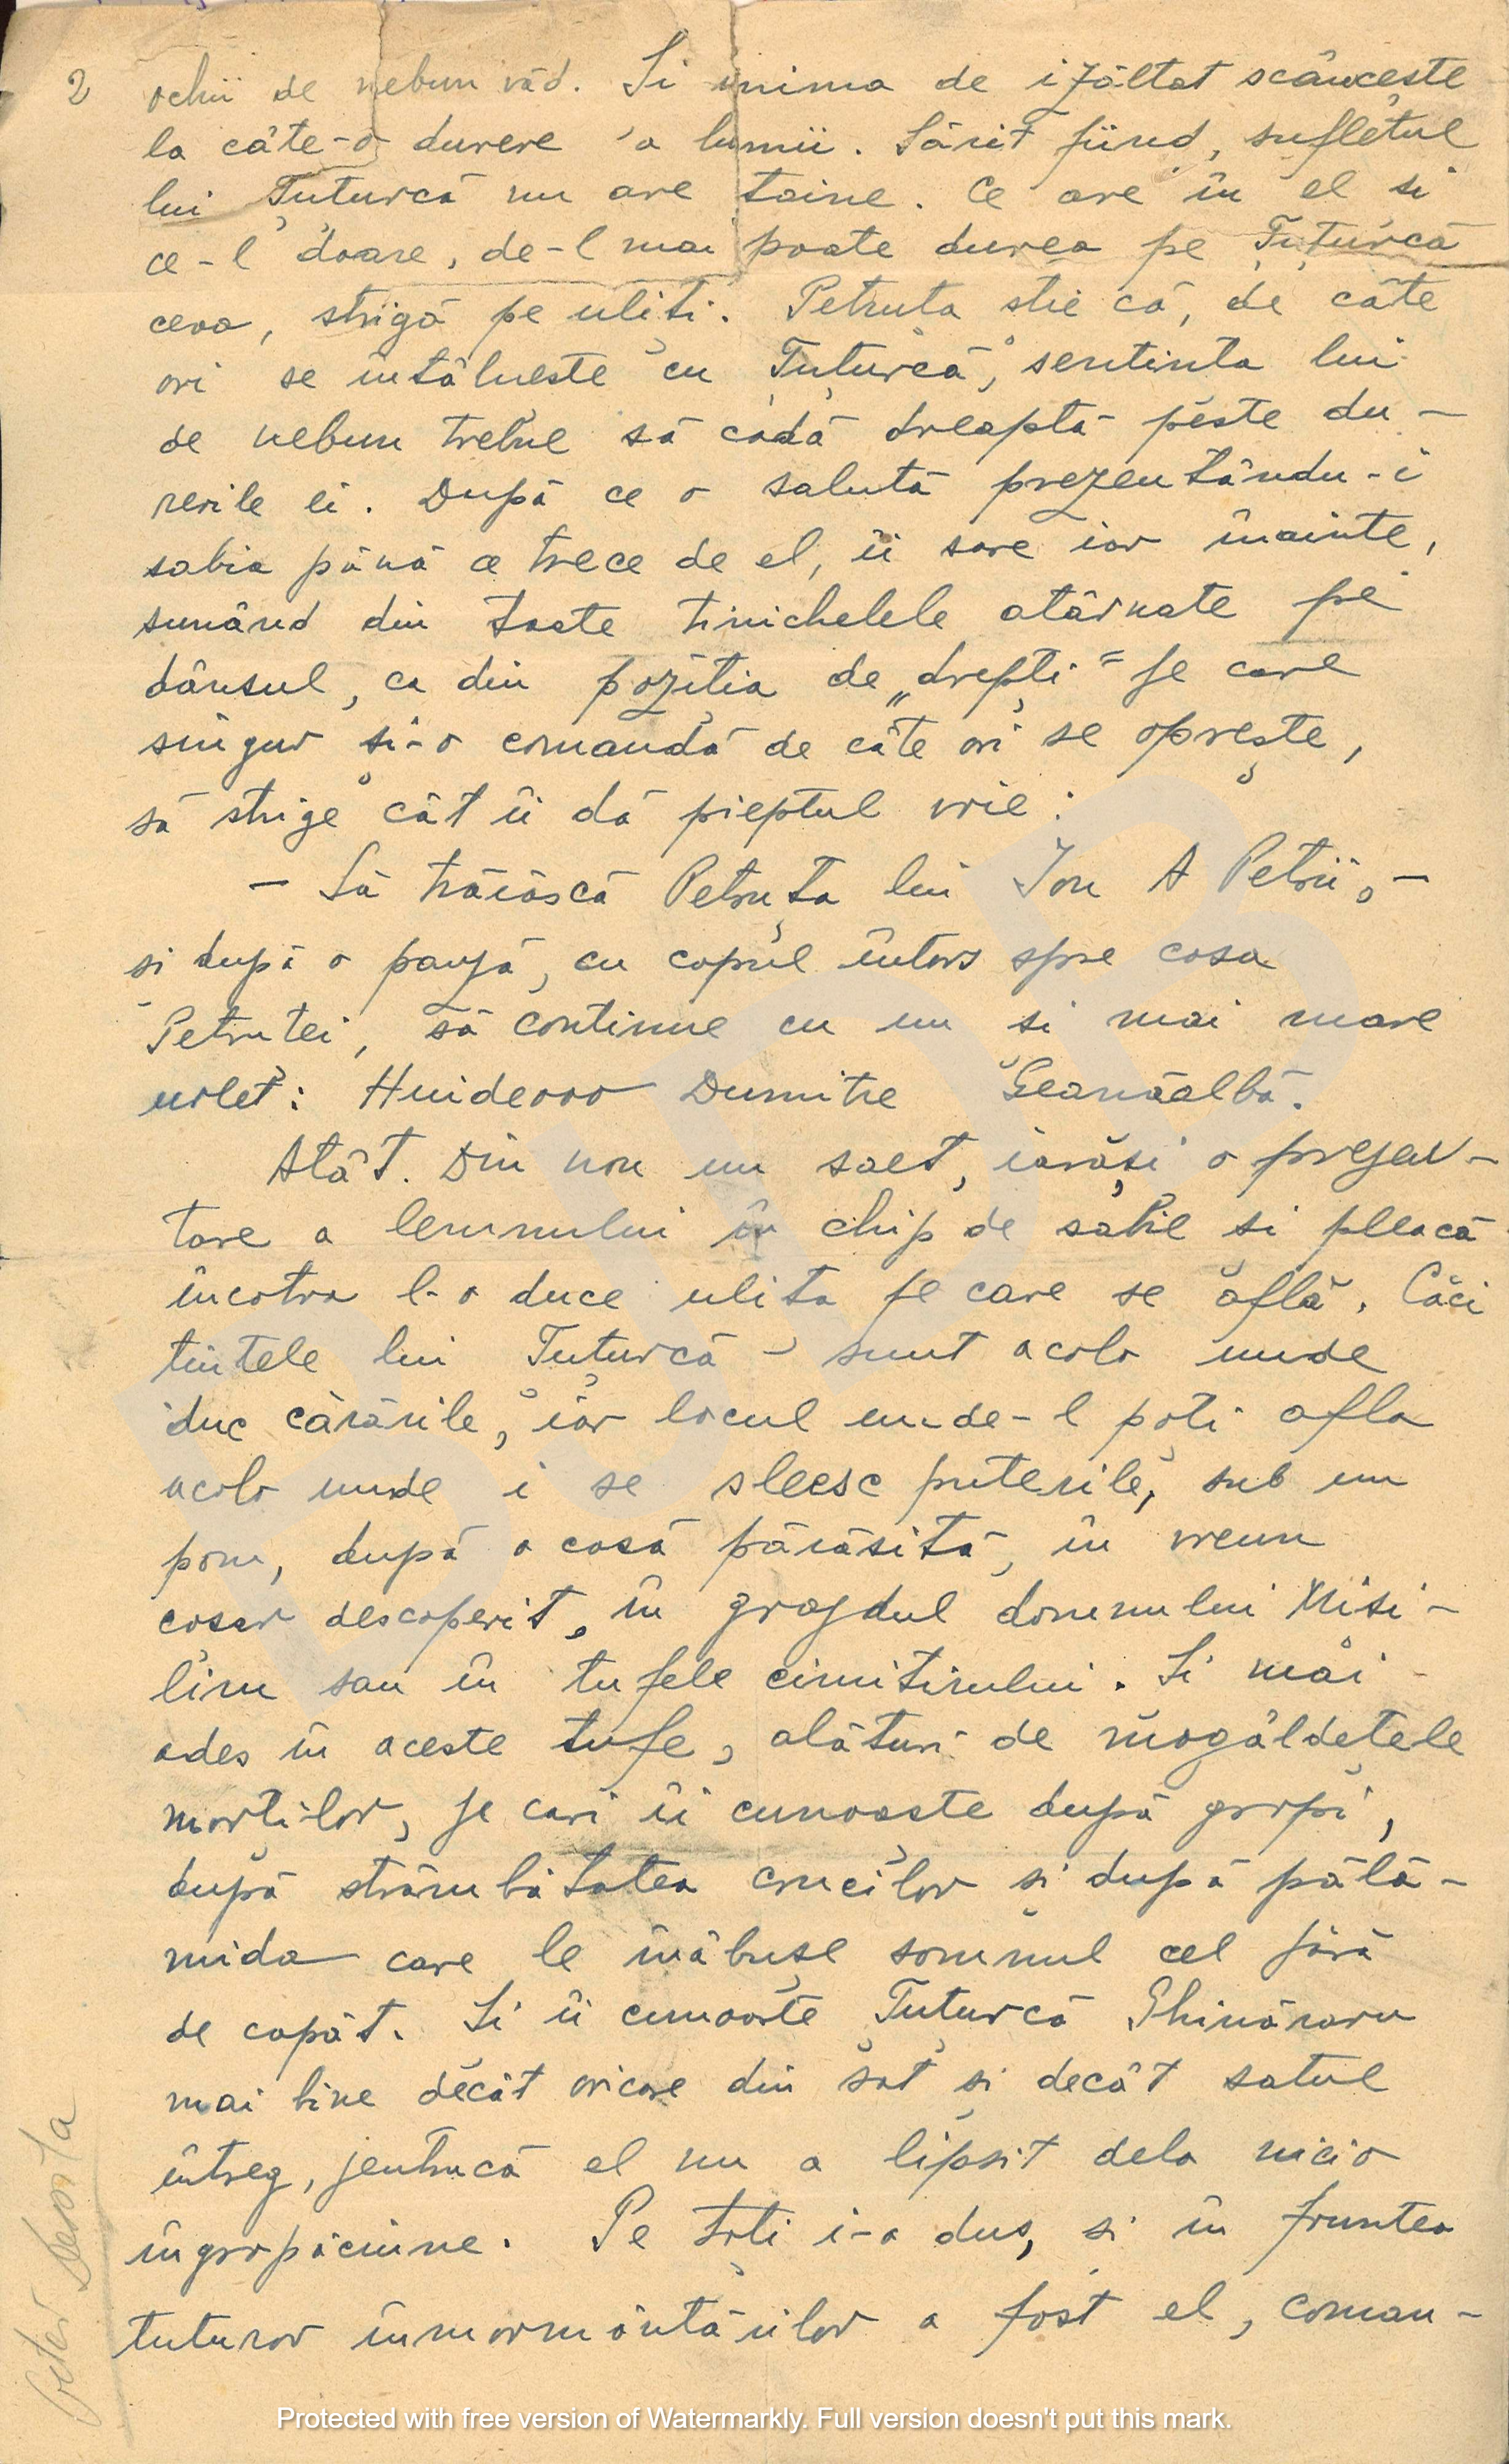 2 ochii de nebun văd. Si inima de izăltat scâncește
la câte-o durere a lumii. Sărit fiind, sufletul
lui Țuțurcă nu are taine. Ce are în el si
ce-l doare, de-l mai poate durea pe Țuțurcă
ceva, strigă pe uliți. Petruta stie că, de câte
ori se întâlnește cu Țuțurcă, sentinta lui
de nebun trebue să cadă dreaptă peste du-
rerile ei. După ce o salută prezentându-i
sabia până ce trece de el, îi sare iar înainte,
sunând din toate tinichelele atârnate pe
dânsul, ca din poziția de „drepți” pe care
singur si-o comandă de câte ori se oprește,
să strige cât îi dă pieptul vrie:
– Să trăiască Petruța lui Ion A Petrii, –
si după o pauză, cu capul întors spre casa
Petruței, să continue cu un si mai mare
urlet: Huideooo Dumitre Geanăalbă.
Atât. Din nou un salt, iarăși o prezen-
tare a lemnului în chip de sabie si pleacă
încotro l-o duce ulita pe care se află. Căci
tintele lui Țuțurcă – sunt acolo unde
duc cărările, iar locul unde-l poți afla
acolo unde i se sleesc puterile, sub un
pom, după o casă părăsită, în vreun
coșar descoperit, în grajdul domnului Misi-
lim sau în tufele cimitirului. Si mai
ades în aceste tufe, alături de mogâldețele
morților, pe cari îi cunoaște după gropi,
după strâmbătatea crucilor și după pălă-
mida care le înăbușe somnul cel fără
de capăt. Si îi cunoaște Țuțurcă Ghinăraru
mai bine decât oricare din sat și decât satul
întreg, pentrucă el nu a lipsit dela nicio
îngropăciune. Pe toți i-a dus, și în fruntea
tuturor înmormântărilor a fost el, coman-
Protected with free version of Watermarkly. Full version doesn't put this mark.